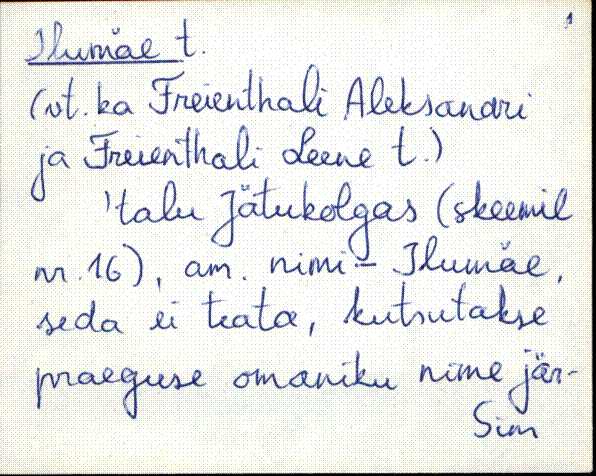 1
Ilumäe t.
(vt. ka Freienthali Aleksandri
ja Freienthali Leene t.)
'talu Jätukolgas (skeemil
nr. 16), am. nimi – Ilumäe,
seda ei teata, kutsutakse
praeguse omaniku nime jär-
Sim